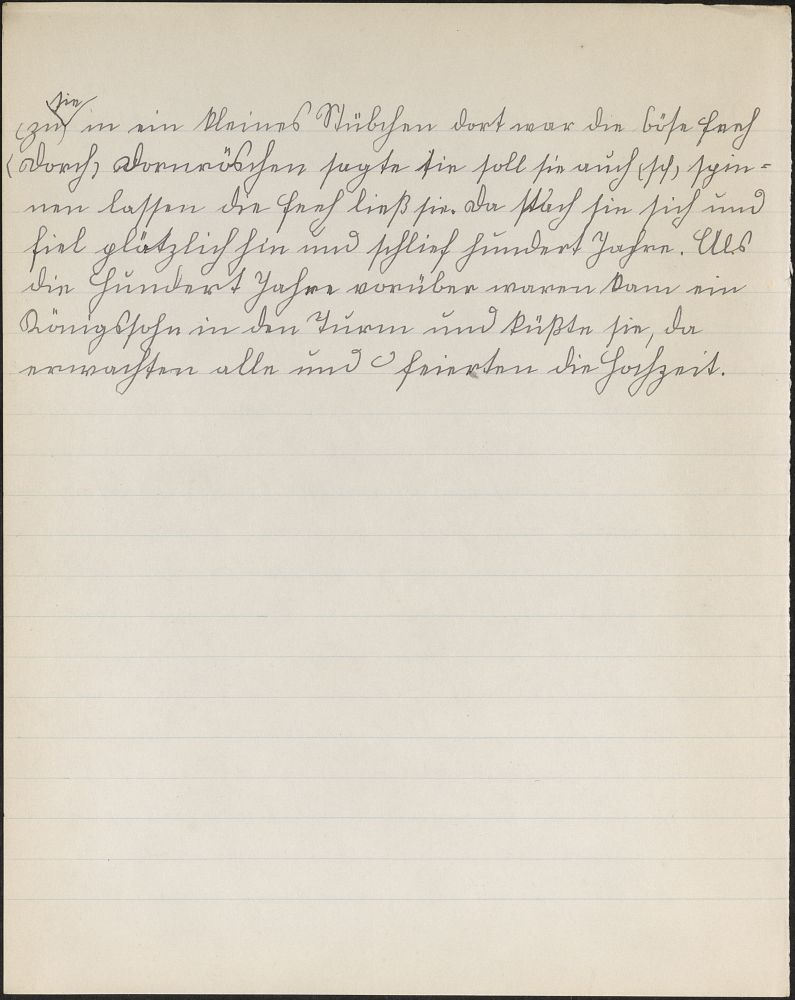 sie
(zu) in ein kleines Stübchen dort war die böse feeh
(Dorch) Dornröschen sagte sie soll sie auch (sch) spin=
nen lassen die feeh ließ sie. Da stach sie sich und
fiel plötzlich hin und schlief hundert Jahre. Als
die hundert Jahre vorüber waren kam ein
Königssohn in den Turm und küßte sie, da
erwachten alle und feierten die Hochzeit.